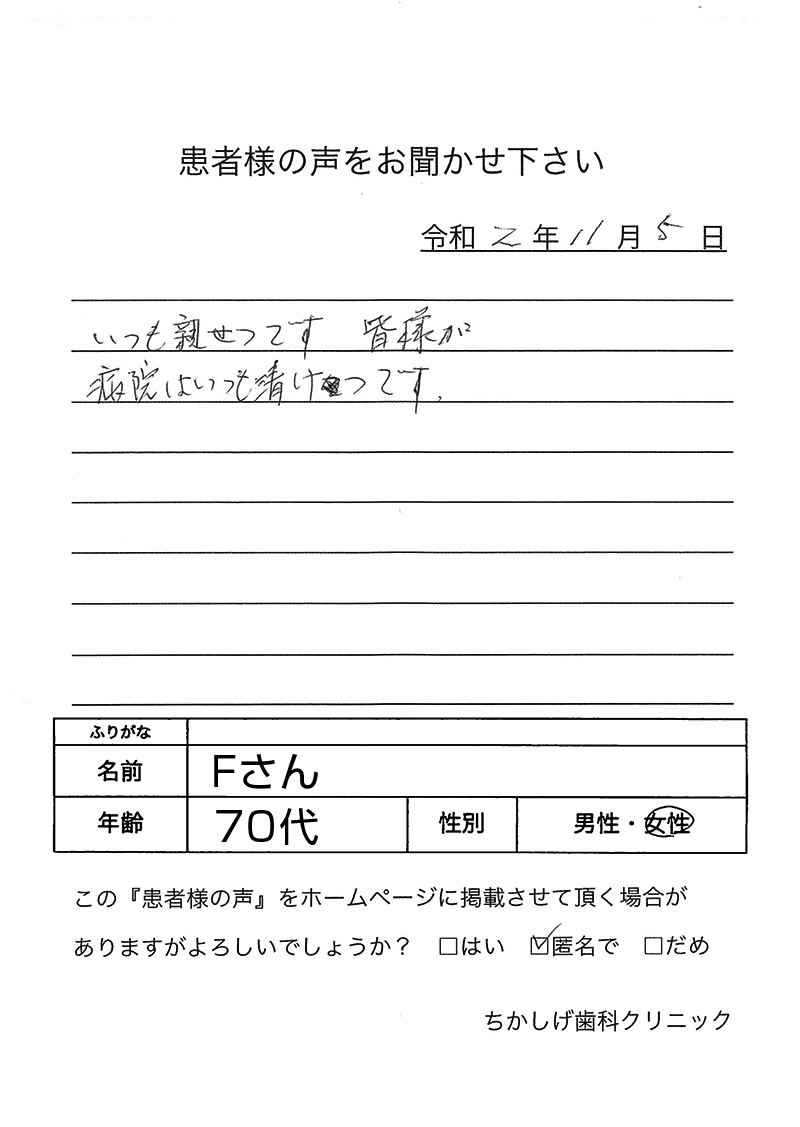 患者様の声をお聞かせ下さい
令和 2 年 11 月 5 日
いつも親せつです 皆様が
病院はいつも清けつです。
ふりがな
名前 Fさん
年齢 70代 性別 男性・女性
この『患者様の声』をホームページに掲載させて頂く場合が
ありますがよろしいでしょうか？ □はい ☑匿名で □だめ
ちかしげ歯科クリニック